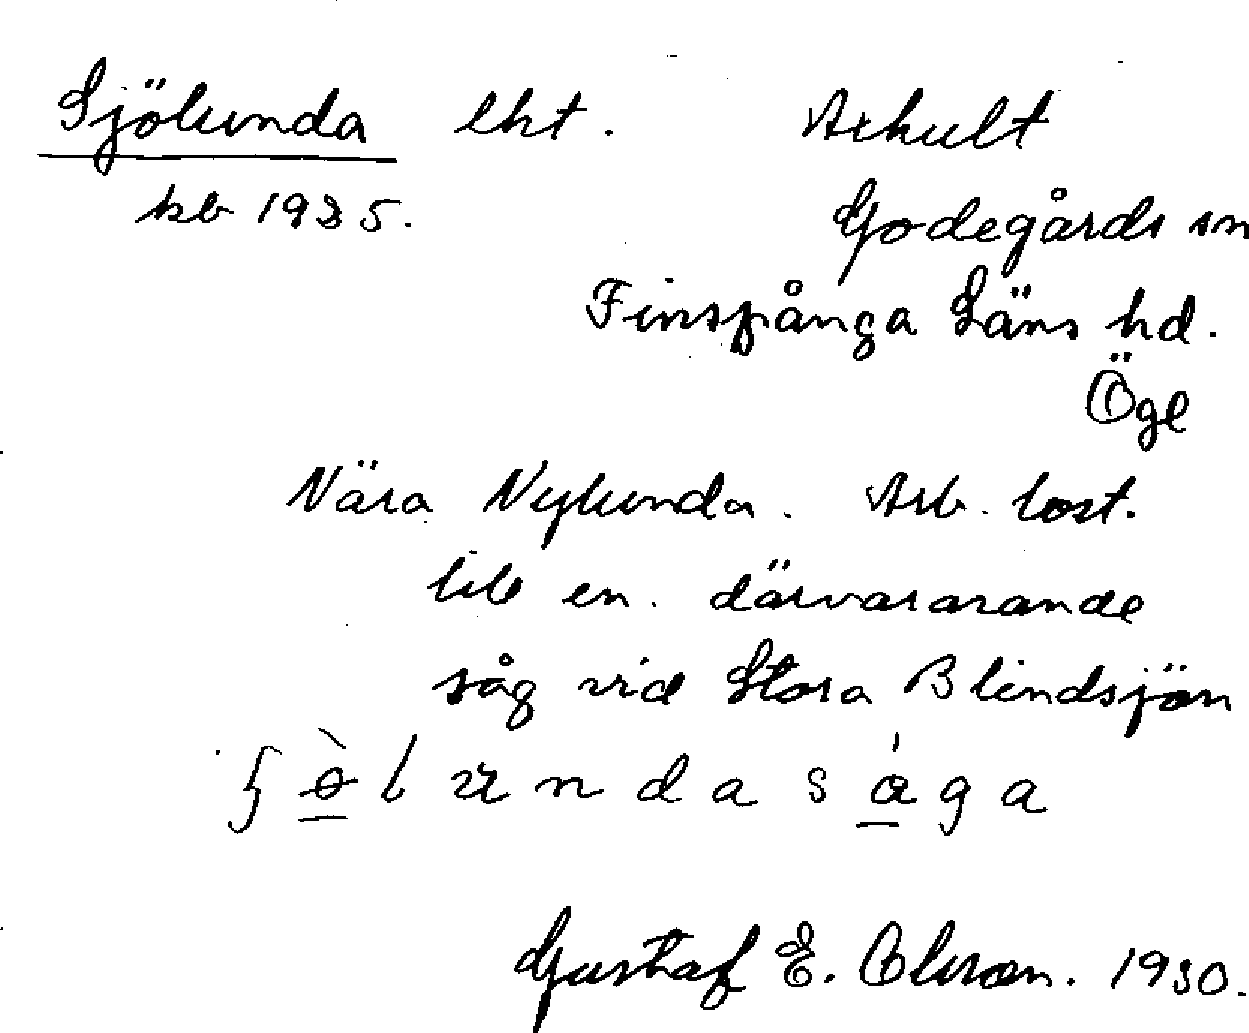 Sjölunda lht. Axhult
kb 1935. Godegårds sn
Finspånga Läns hd.
Ögl
Nära Nylunda. Arb. bost.
till en därvararande
såg vid Stora Blindsjön
Gustaf E. Olsson. 1930.